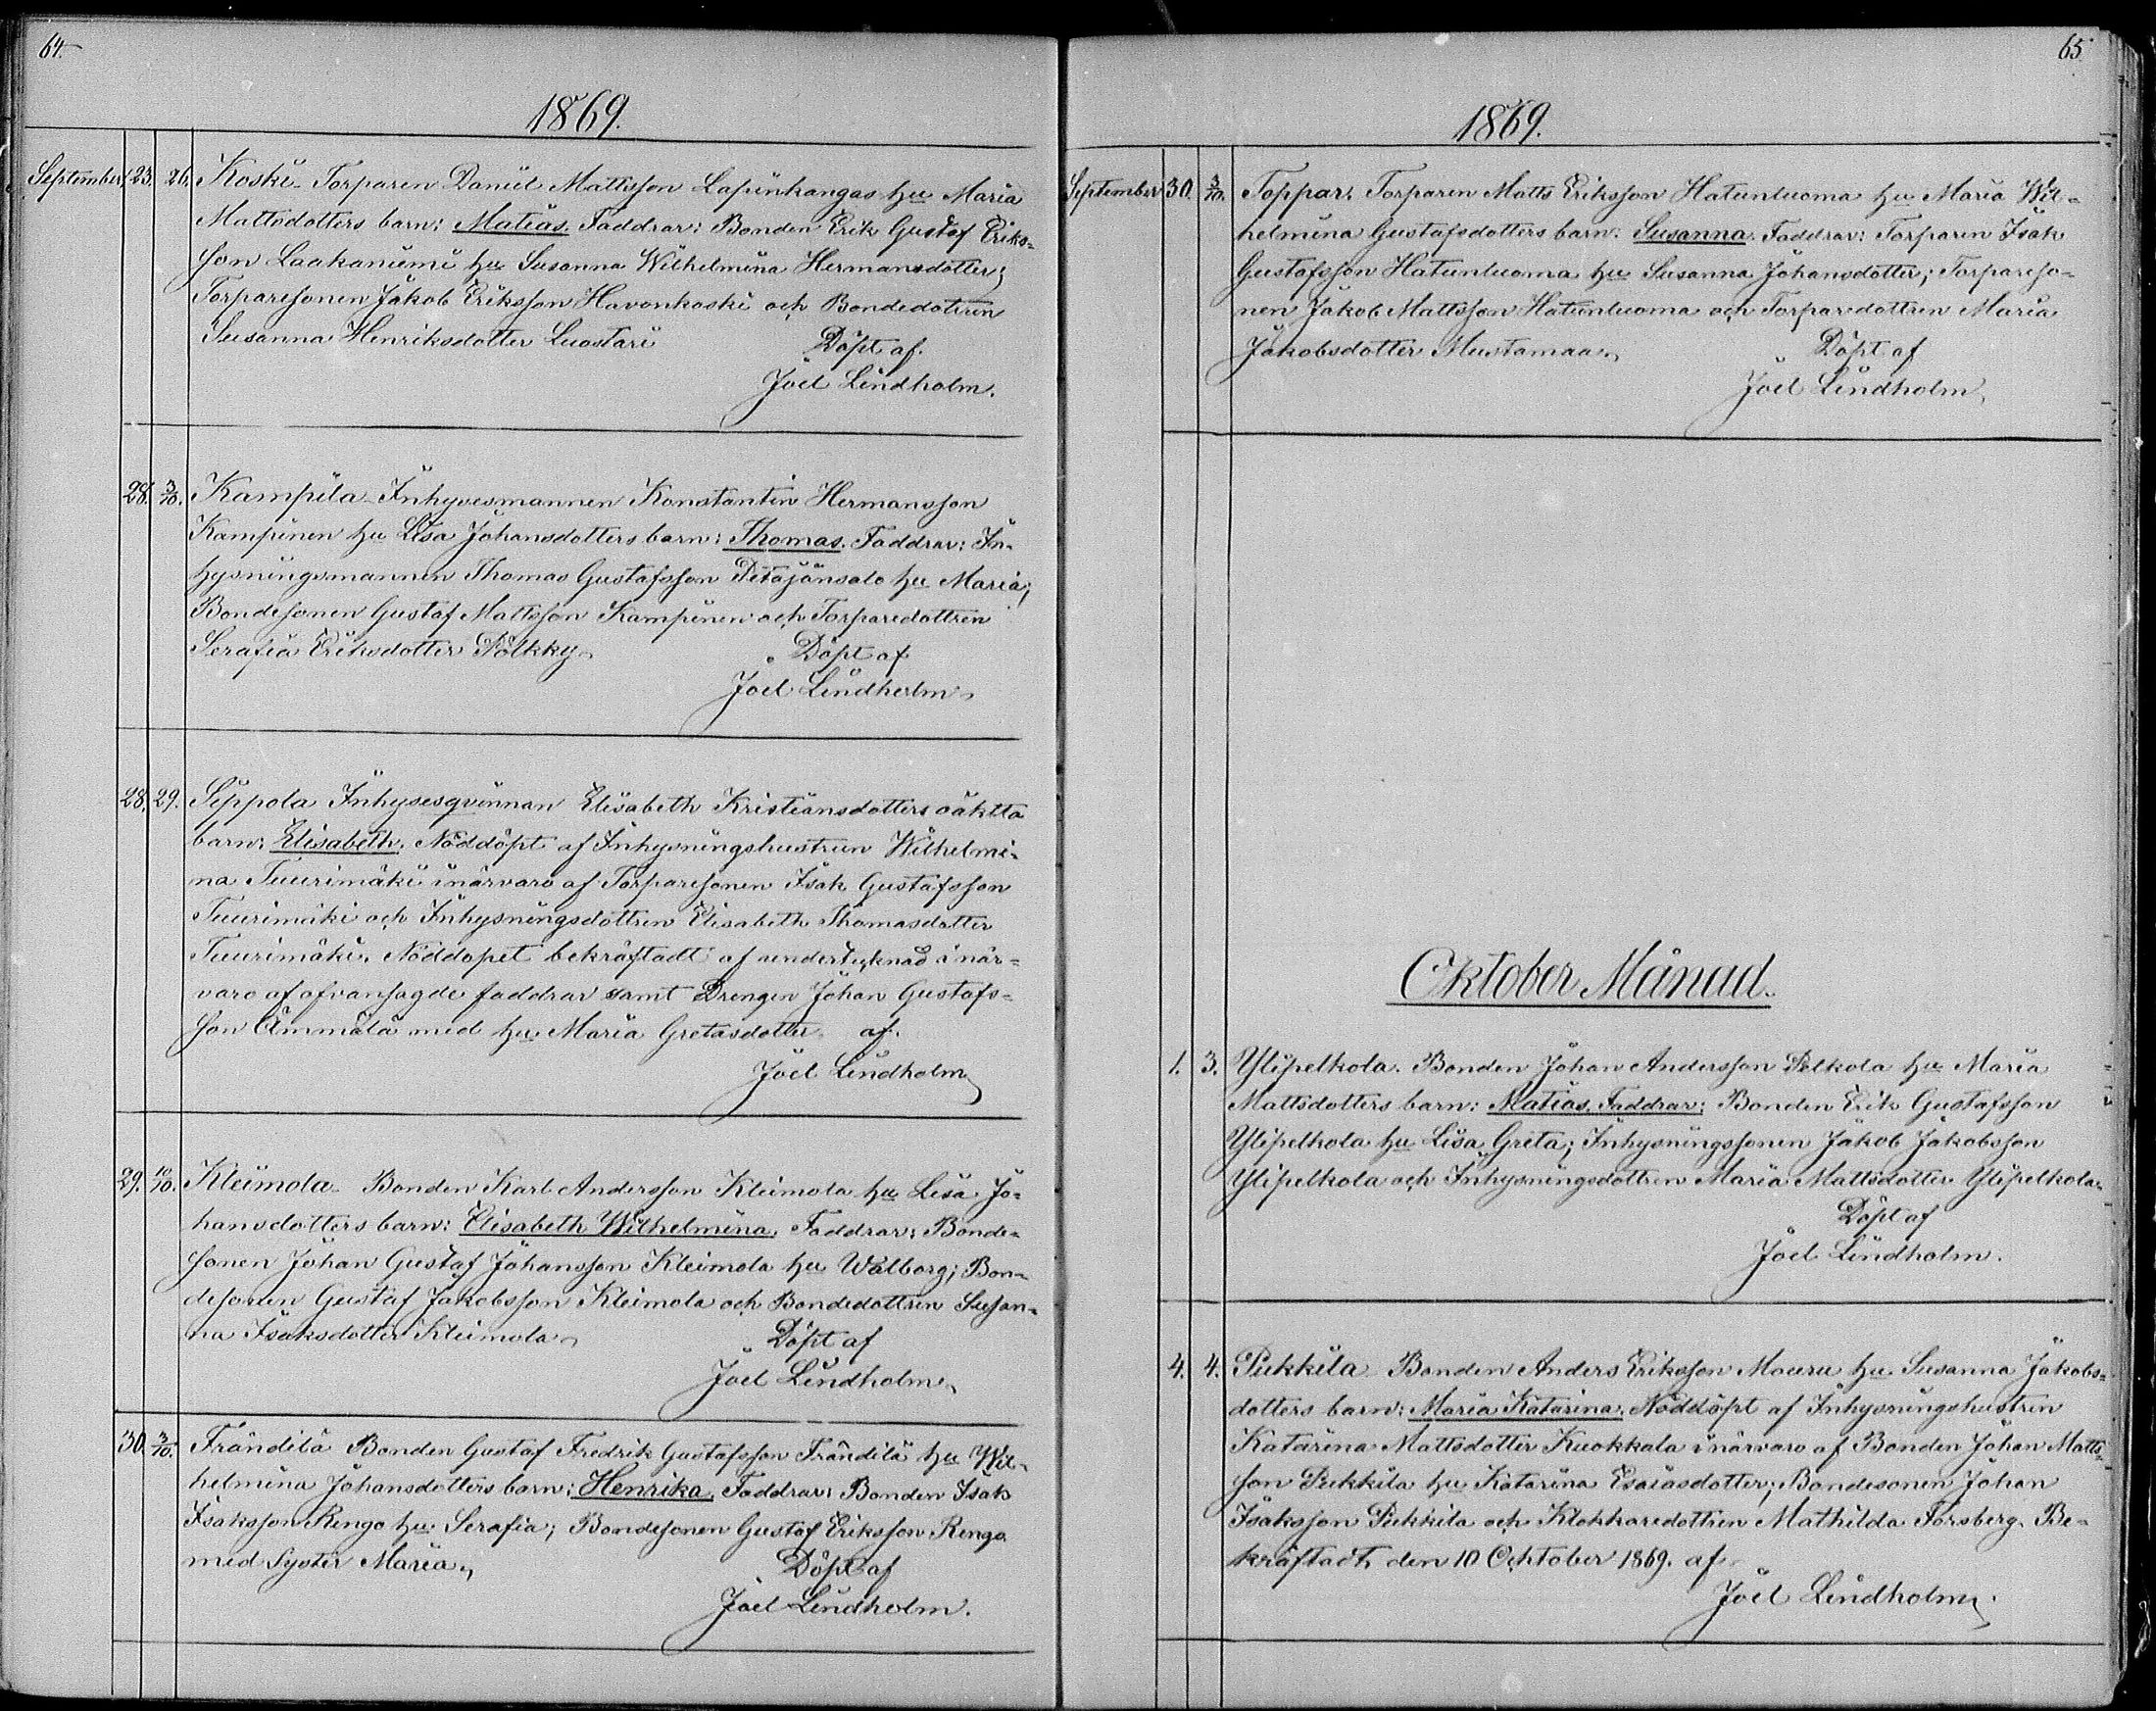 64.
1869.
September 23. 26. Koski. Torparen Daniel Mattsson Lapinkangas hu Maria
Mattsdotters barn: Matias. Faddrar: Bonden Erik Gustaf Eriks-
son Laakaniemi hu Susanna Wilhelmina Hermansdotter;
Torparesonen Jakob Eriksson Havonkoski och Bondedotren
Susanna Henriksdotter Luostari Döpt af.
Joel Lindholm.
28. 3/10. Kampila. Inhysesmannen Konstantin Hermansson
Kampinen hu Lisa Johansdotters barn: Thomas. Faddrar: In-
hysningsmannen Thomas Gustafsson Petäjänsalo hu Maria;
Bondesonen Gustaf Mattsson Kampinen och Torparedottren
Serafia Eriksdotter Pölkky. Döpt af
Joel Lindholm.
28. 29. Seppola Inhysesqvinnan Elisabeth Kristiansdotters oäkta
barn: Elisabeth. Nöddöpt af Inhysningshustrun Wilhelmi-
na Tuurimäki i närvaro af Torparesonen Isak Gustafsson
Tuurimäki och Inhysningsdottren Elisabeth Thomasdotter
Tuurimäki. Nöddopet bekräftadt af undertecknad i när-
varo af ofvansagde faddrar samt Drengen Johan Gustafs-
son Ämmälä med hu Maria Gretasdotter. af.
Joel Lindholm
29. 10/10. Kleimola. Bonden Karl Andersson Kleimola hu Lisa Jo-
hansdotters barn: Elisabeth Wilhelmina. Faddrar: Bonde-
sonen Johan Gustaf Johansson Kleimola hu Walborg; Bon-
desonen Gustaf Jakobsson Kleimola och Bondedottren Susan-
na Isaksdotter Kleimola. Döpt af
Joel Lindholm.
30. 3/10. Frändilä Bonden Gustaf Fredrik Gustafsson Frändilä hu Wil-
helmina Johansdotters barn: Henrika. Faddrar: Bonden Isak
Isaksson Rengo hu Serafia; Bondesonen Gustaf Eriksson Rengo
med Syster Maria. Döpt af
Joel Lindholm.
65
1869.
September 30. 3/10. Toppar. Torparen Matts Eriksson Hatunluoma hu Maria Wil-
helmina Gustafsdotters barn: Susanna. Faddrar: Torparen Isak
Gustafsson Hatunluoma hu Susanna Johansdotter; Torpareso-
nen Jakob Mattsson Hatunluoma och Torparedottren Maria
Jakobsdotter Mustamaa. Döpt af
Joel Lindholm.
Oktober Månad.
1. 3. Ylipelkola. Bonden Johan Andersson Pelkola hu Maria
Mattsdotters barn: Matias. Faddrar: Bonden Erik Gustafsson
Ylipelkola hu Lisa Greta; Inhysningssonen Jakob Jakobsson
Ylipelkola och Inhysningsdottren Maria Mattsdotter Ylipelkola.
Döpt af
Joel Lindholm.
4. 4. Pukkila Bonden Anders Eriksson Mouru hu Susanna Jakobs-
dotters barn: Maria Katarina. Nöddöpt af Inhysningshustrun
Katarina Mattsdotter Kuokkala i närvaro af Bonden Johan Matts-
son Pukkila hu Katarina Esaiasdotter; Bondesonen Johan
Isaksson Pukkila och Klokkaredottren Mathilda Forsberg. Be-
kräftadt den 10 Ocktober 1869. af
Joel Lindholm.